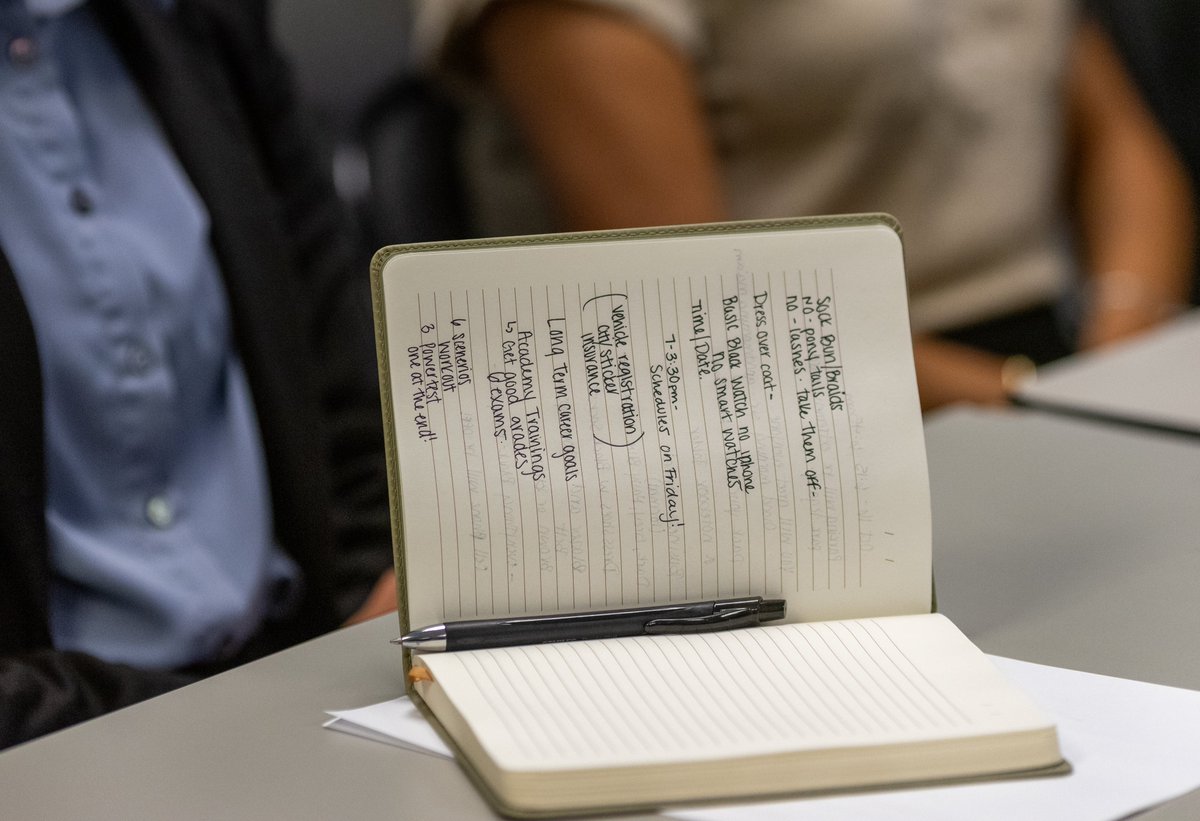 Sock Bun/Braids
no-pony tails
no-lashes. take them off-
Dress over coat-
Basic Black watch no iphone
no smart watches
Time/Date.
7-3:30pm-
Schedules on Friday!
(vehicle registration)
city sticker
insurance
Long Term career goals
Academy Trainings
↳ Get good grades
(exams-
6 scenerios
workout
3 Power test
one at the end!